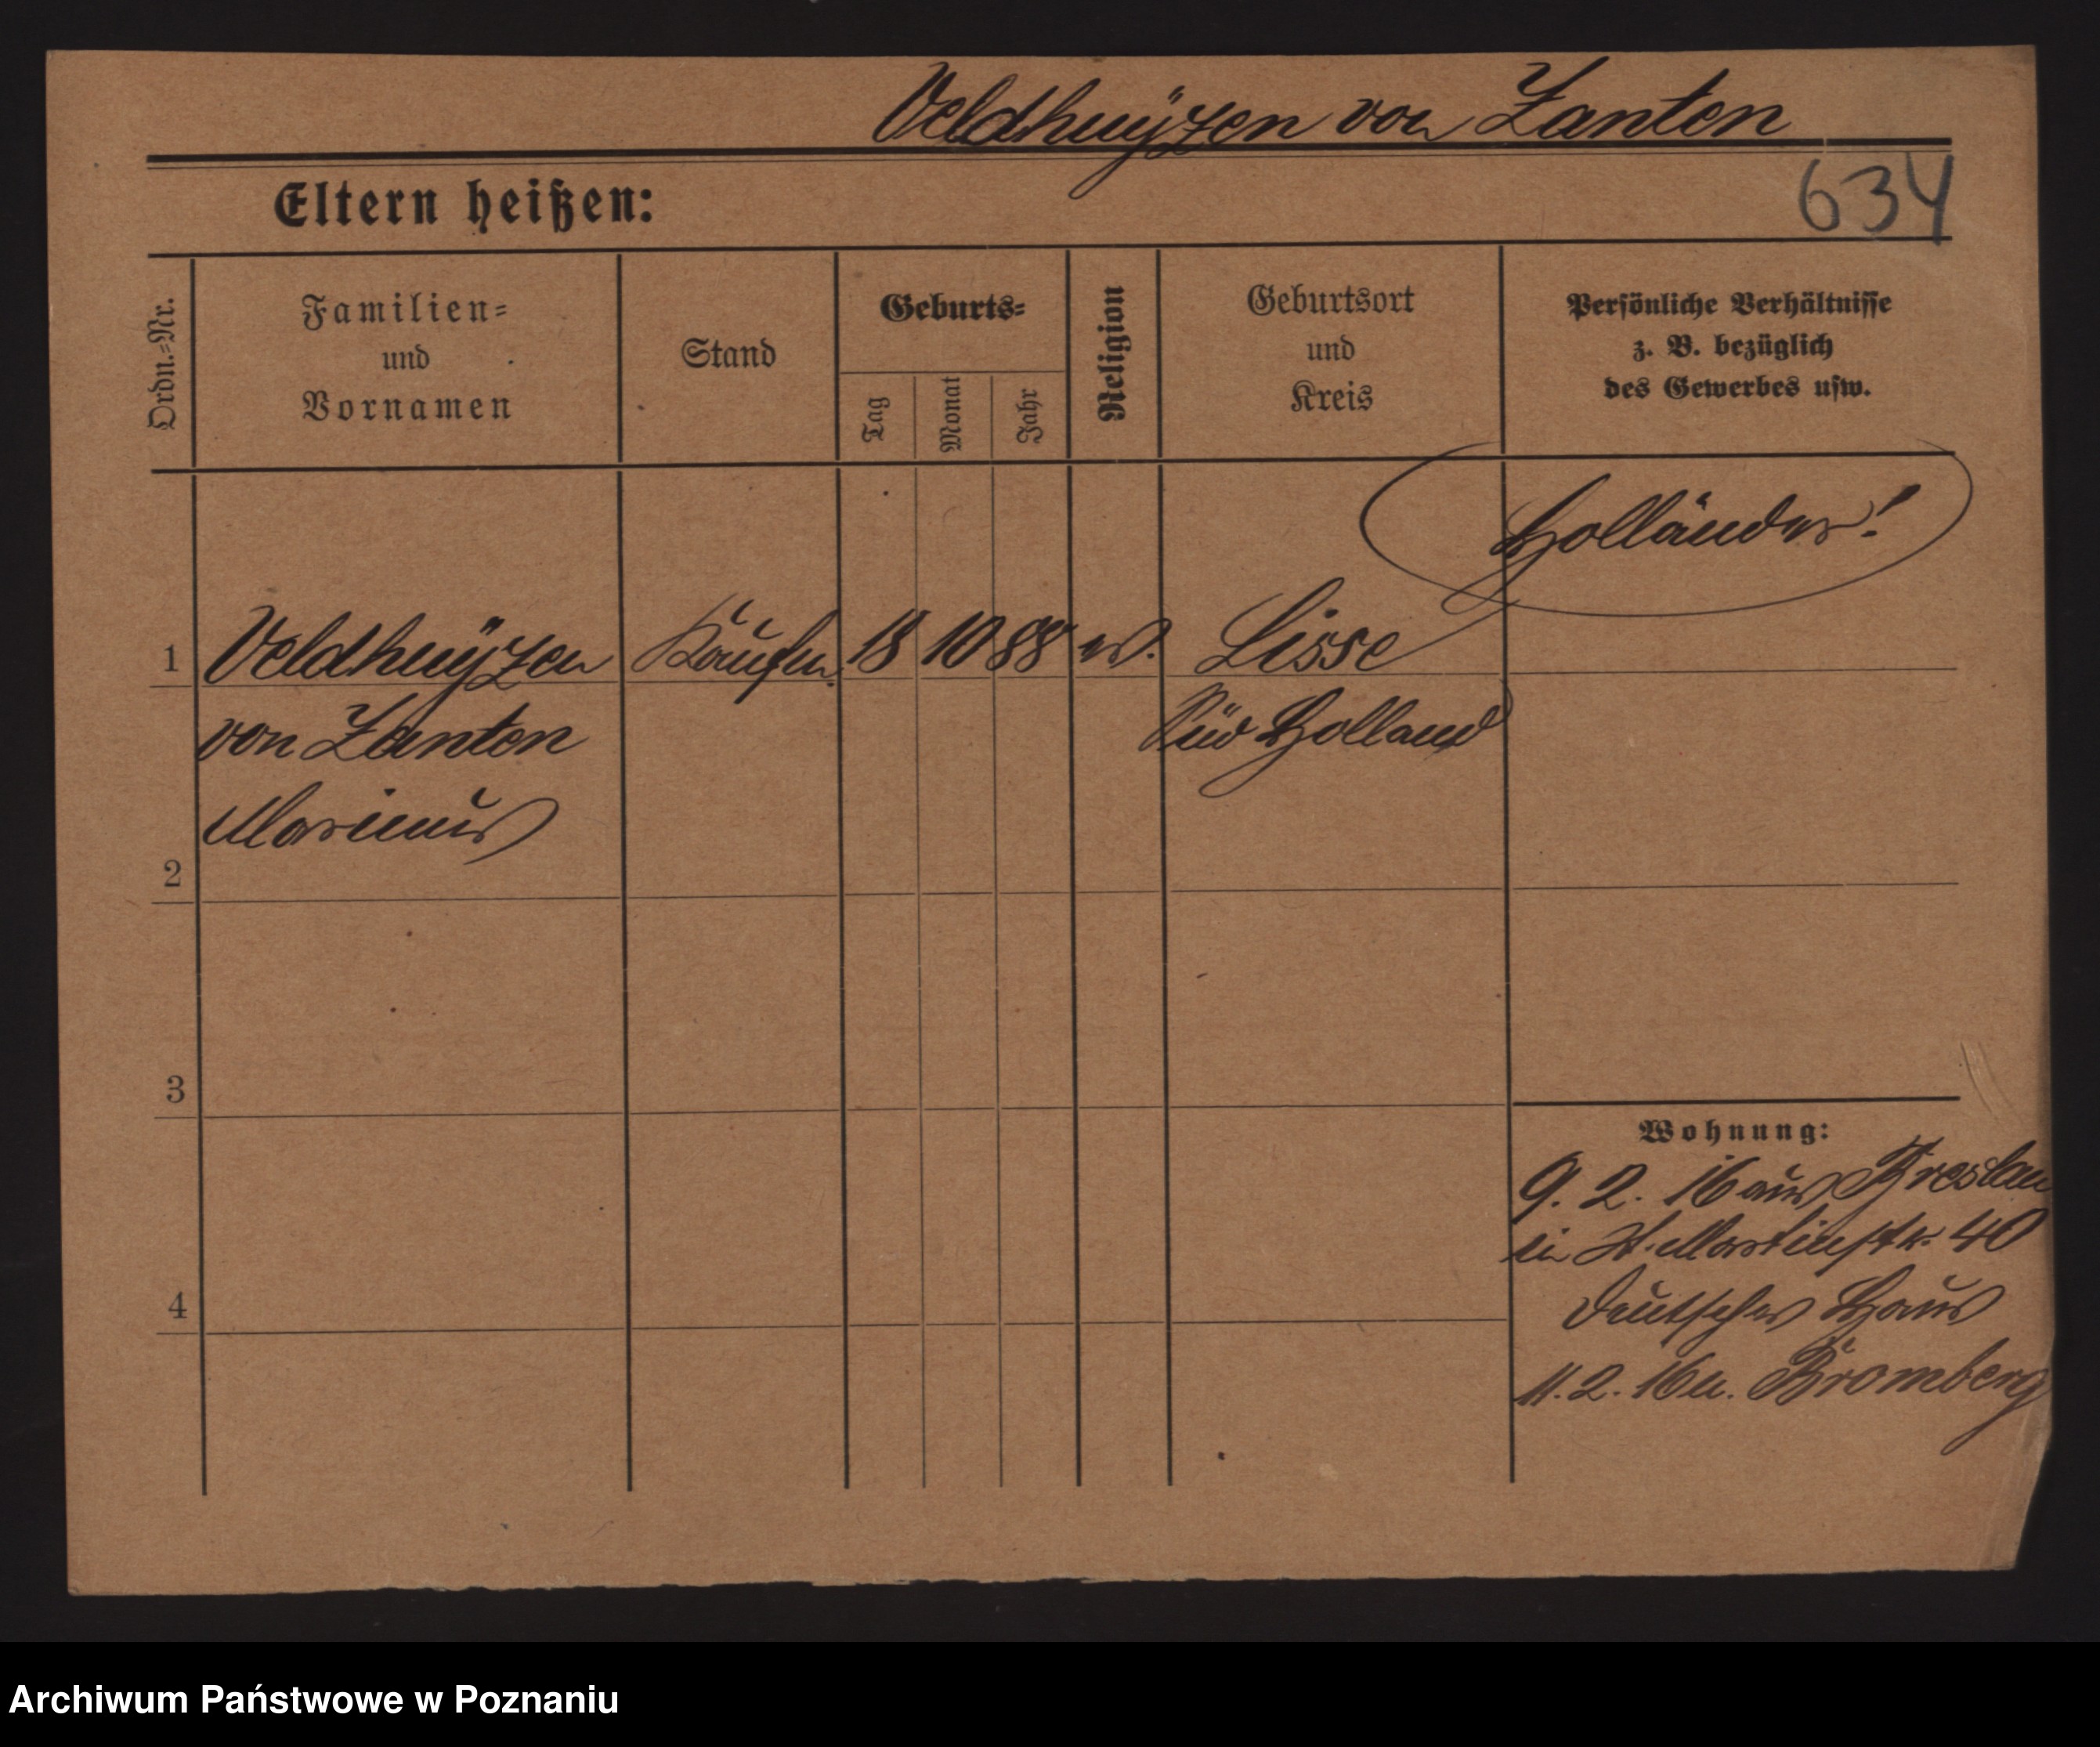 Veldhuÿzen von Zanten
Eltern heißen:
634
Ordn.=Nr.
Familien=
und
Vornamen
Stand
Geburts=
Tag
Monat
Jahr
Religion
Geburtsort
und
Kreis
Persönliche Verhältnisse
z. B. bezüglich
des Gewerbes usw.
Holländer!
1 Veldhuÿzen Kaufm. 18 10 88 Lisse
von Zanten Süd Holland
Marinus
2
3
Wohnung:
9. 2. 16 aus Breslau
in St. Martinstr. 40
4
Deutsches Haus
11. 2. 16 n. Bromberg
Archiwum Państwowe w Poznaniu